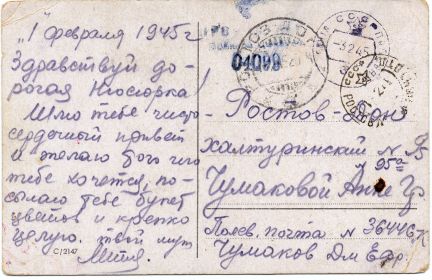 "1 февраля 1945 г
Здравствуй до-
рогая Нюсюрка!
Шлю тебе
сердечный привет
и желаю того чего
тебе хочется, по-
сылаю тебе букет
цветов и крепко
целую. твой муж
Митя.
С/2147
04099
СССР
-3.2.45
РОСТОВ
Ростов-Дон
Халтуринский № 
95а
Чумаковой Анне Гр.
Полев. почта № 36446 К
Чумаков Дм Еф.